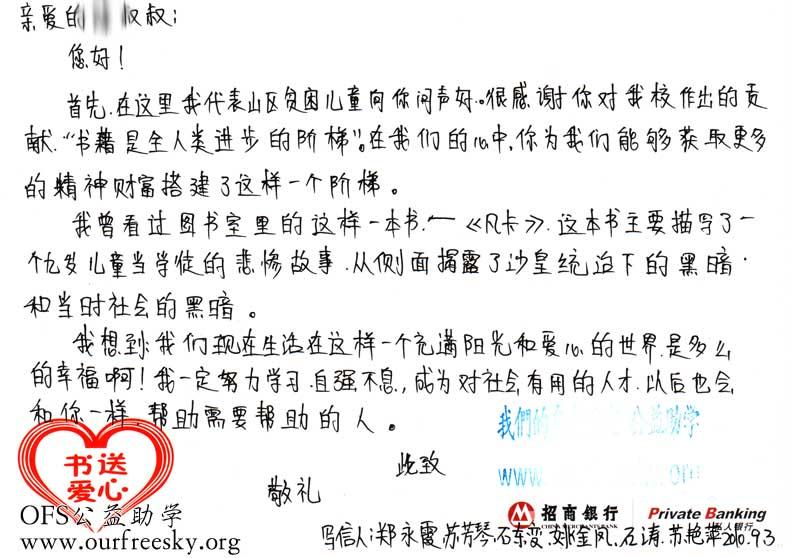 亲爱的 叔叔:
您好!
首先,在这里我代表山区贫困儿童向你问声好。很感谢你对我校作出的贡
献.“书籍是全人类进步的阶梯”。在我们的心中,你为我们能够获取更多
的精神财富搭建了这样一个阶梯。
我曾看过图书室里的这样一本书.一《凡卡》.这本书主要描写了一
个九岁儿童当学徒的悲惨故事.从侧面揭露了沙皇统迫下的黑暗.
和当时社会的黑暗。
我想到:我们现在生活在这样一个充满阳光和爱心的世界是多么
的幸福啊!我一定努力学习.自强不息,成为对社会有用的人才.以后也会
和你一样,帮助需要帮助的人。
我們的 公益助学
www. .org
此致
敬礼
书送
爱心
OFS公益助学
www.ourfreesky.org
招商银行
CHINA MERCHANTS BANK
Private Banking
私人银行
写信人:郑永霞.苏芳琴.石东变.姚金凤.石涛.苏艳萍2010.9.3